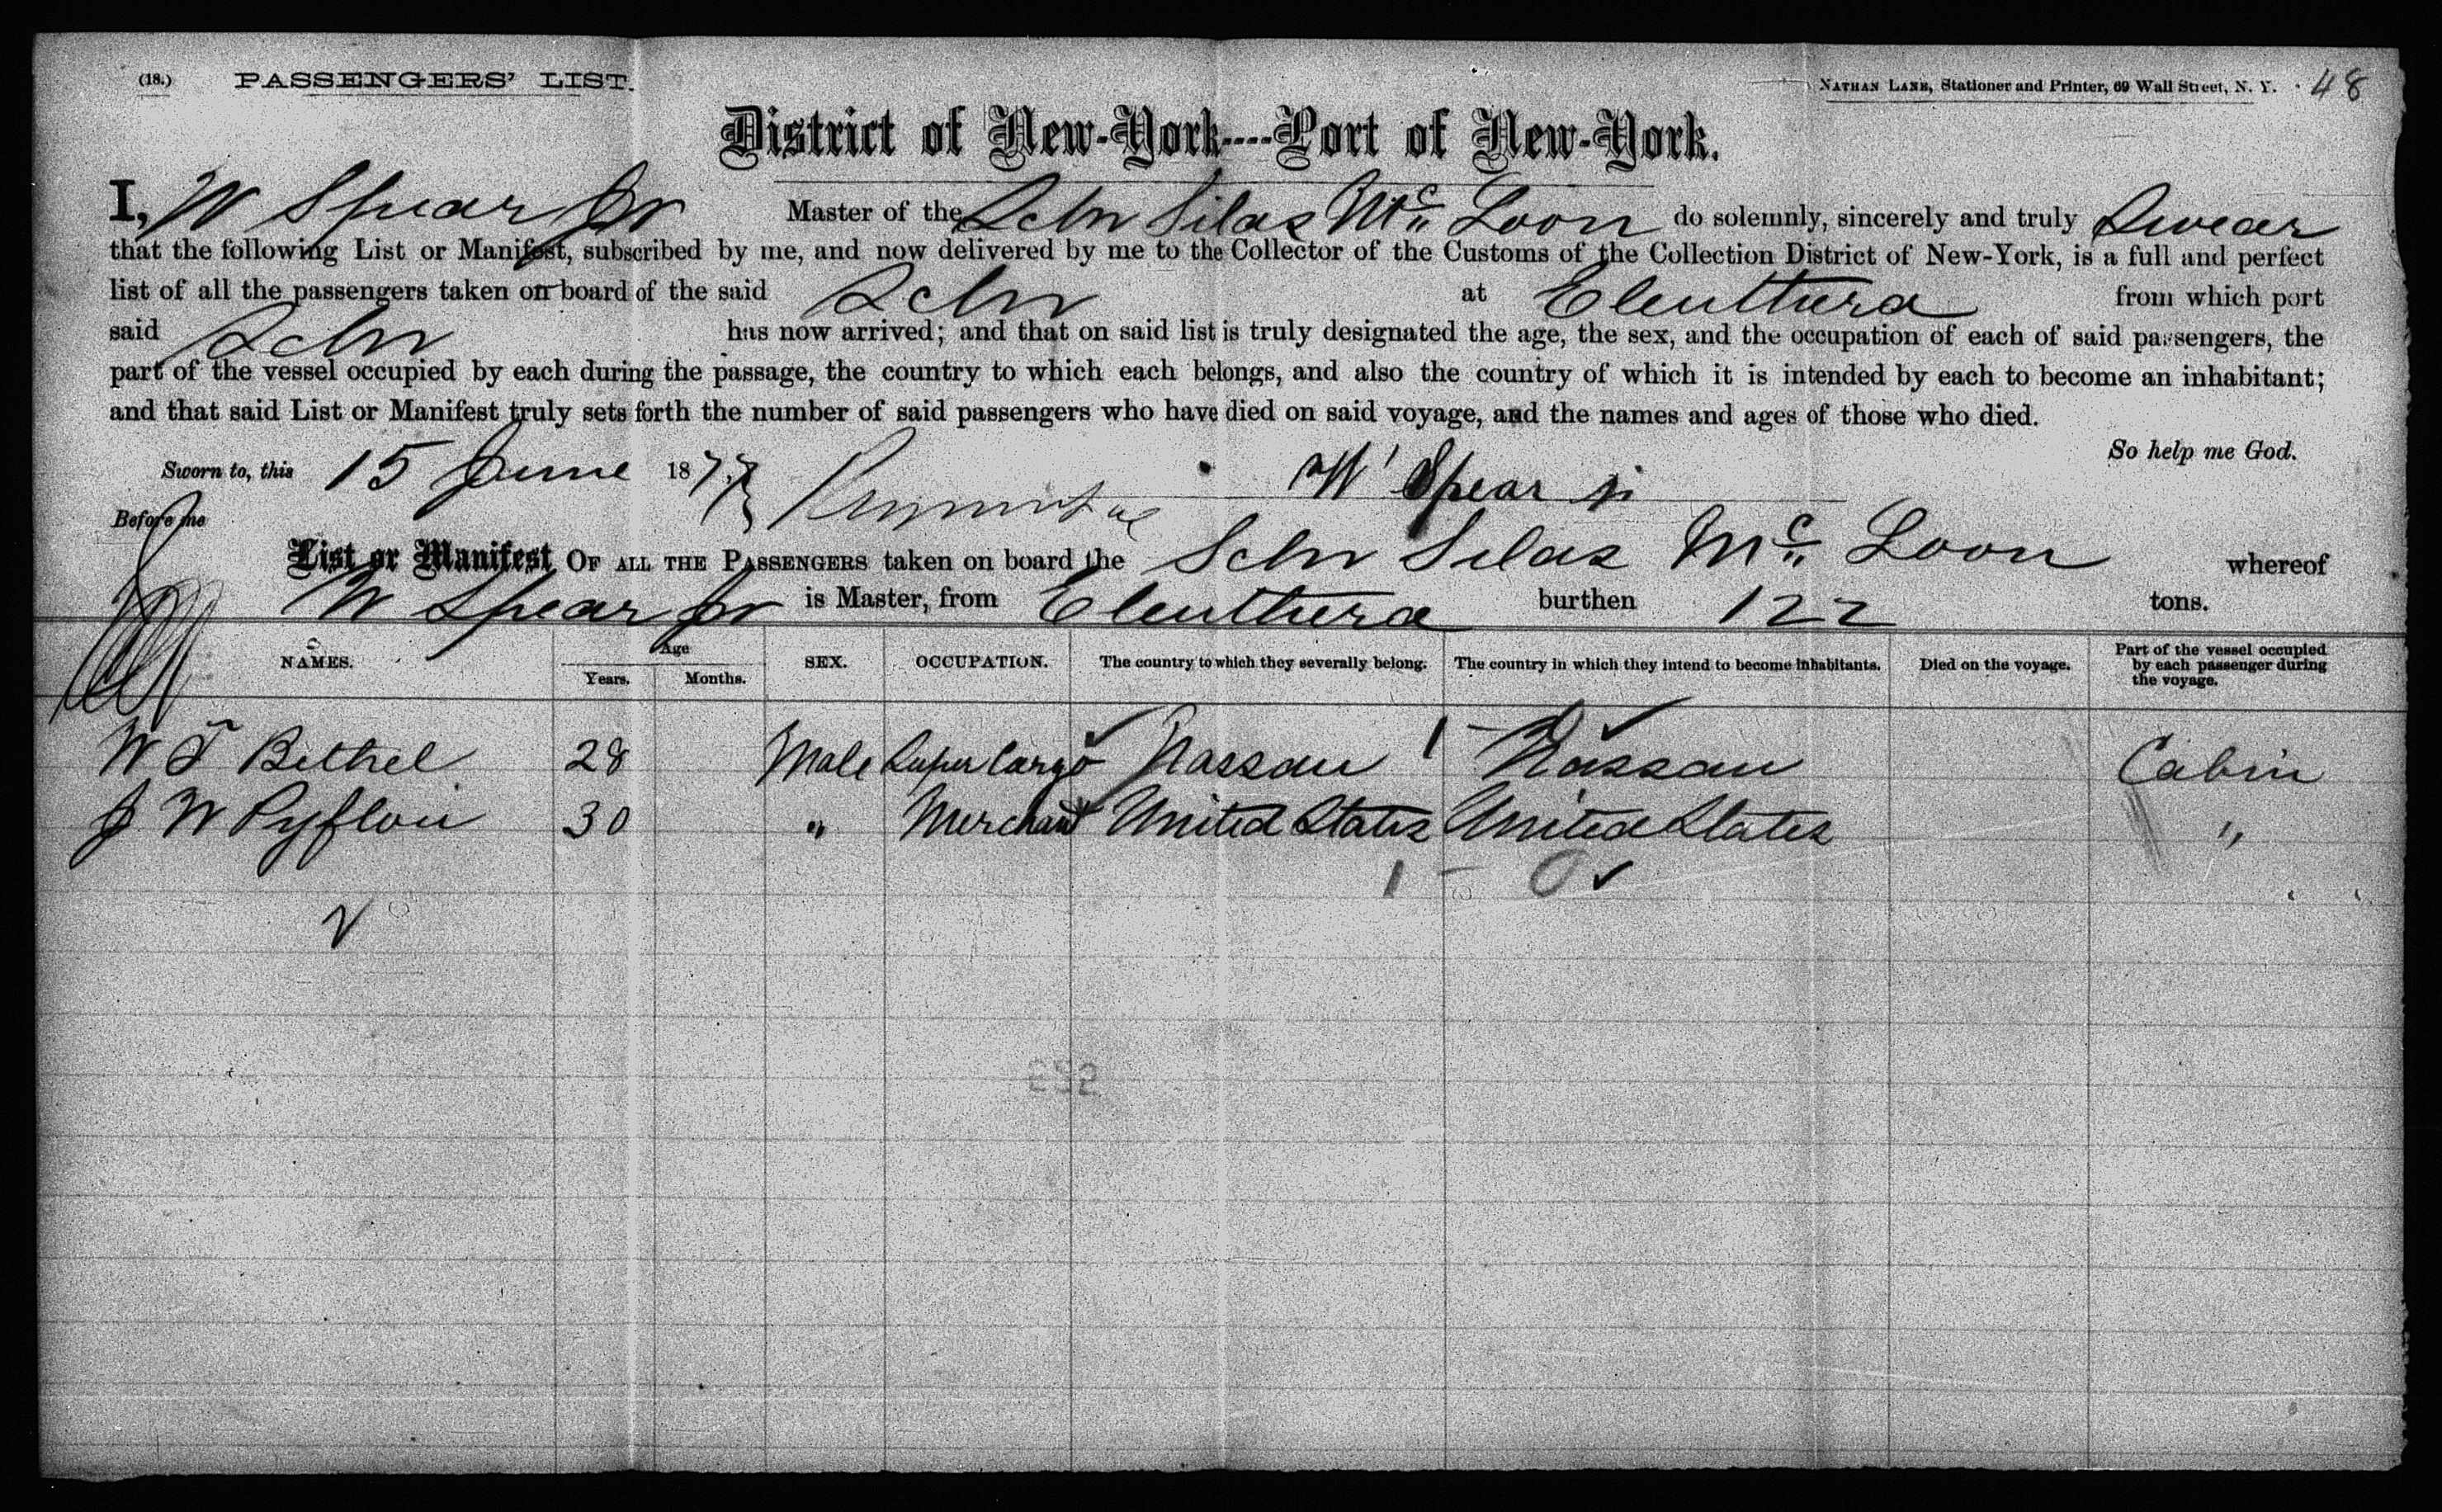 (18.) PASSENGERS' LIST. NATHAN LANE, Stationer and Printer, 69 Wall Street, N. Y. 48
District of New-York----Port of New-York.
I, W Spear Jr Master of the Schr Silas Mc Loon do solemnly, sincerely and truly Swear
that the following List or Manifest, subscribed by me, and now delivered by me to the Collector of the Customs of the Collection District of New-York, is a full and perfect
list of all the passengers taken on board of the said Schr at Eleuthera from which port
said Schr has now arrived; and that on said list is truly designated the age, the sex, and the occupation of each of said passengers, the
part of the vessel occupied by each during the passage, the country to which each belongs, and also the country of which it is intended by each to become an inhabitant;
and that said List or Manifest truly sets forth the number of said passengers who have died on said voyage, and the names and ages of those who died.
So help me God.
Sworn to, this 15 June 1877 W Spear jr
Before me
List or Manifest OF ALL THE PASSENGERS taken on board the Schr Silas Mc Loon whereof
W Spear Jr is Master, from Eleuthera burthen 122 tons.
NAMES. Age Years. Months. SEX. OCCUPATION. The country to which they severally belong. The country in which they intend to become inhabitants. Died on the voyage. Part of the vessel occupied by each passenger during the voyage.
W T Bethel 28 Male Super Cargo Nassau 1 - Nassau Cabin
J W Pyfloui 30 " Merchant United States United States "
1 - 0 ✓